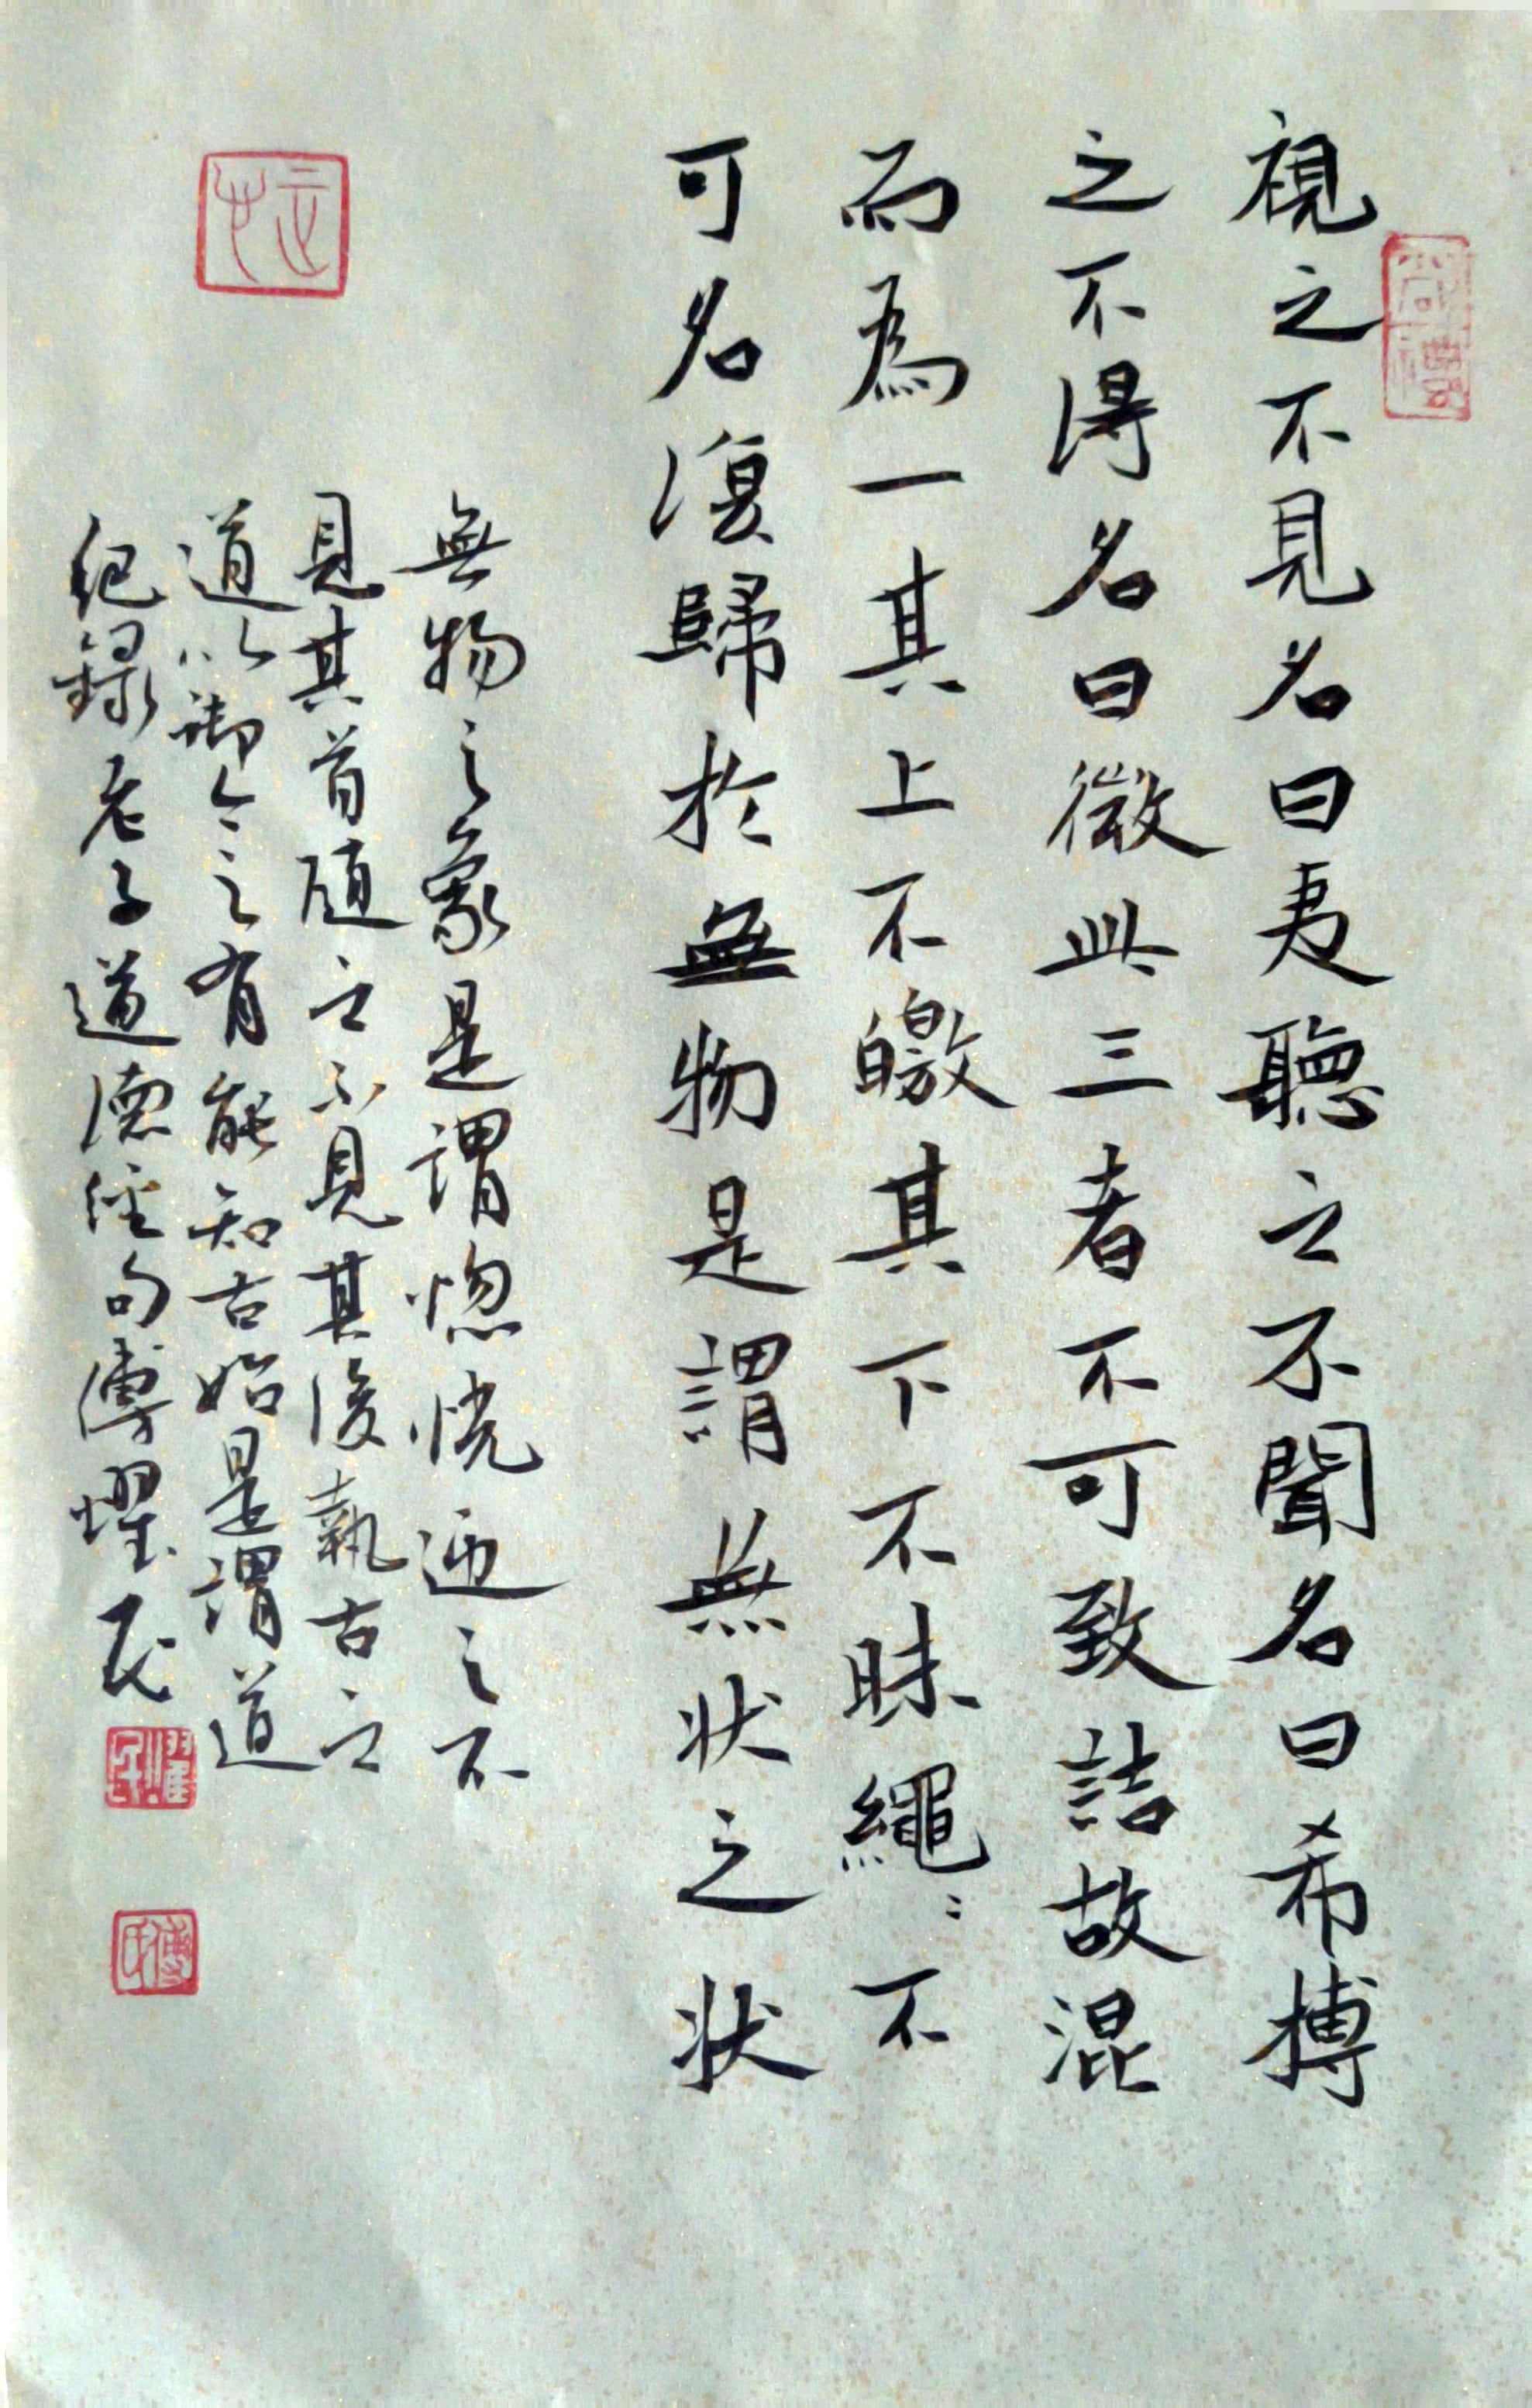 視之不見名曰夷聽之不聞名曰希搏
之不得名曰微此三者不可致詰故混
而為一其上不皦其下不昧繩〻不
可名復歸於無物是謂無狀之狀
無物之象是謂惚恍迎之不
見其首隨之不見其後執古之
道以御今之有能知古始是謂道
紀錄老子道德經句傅耀民